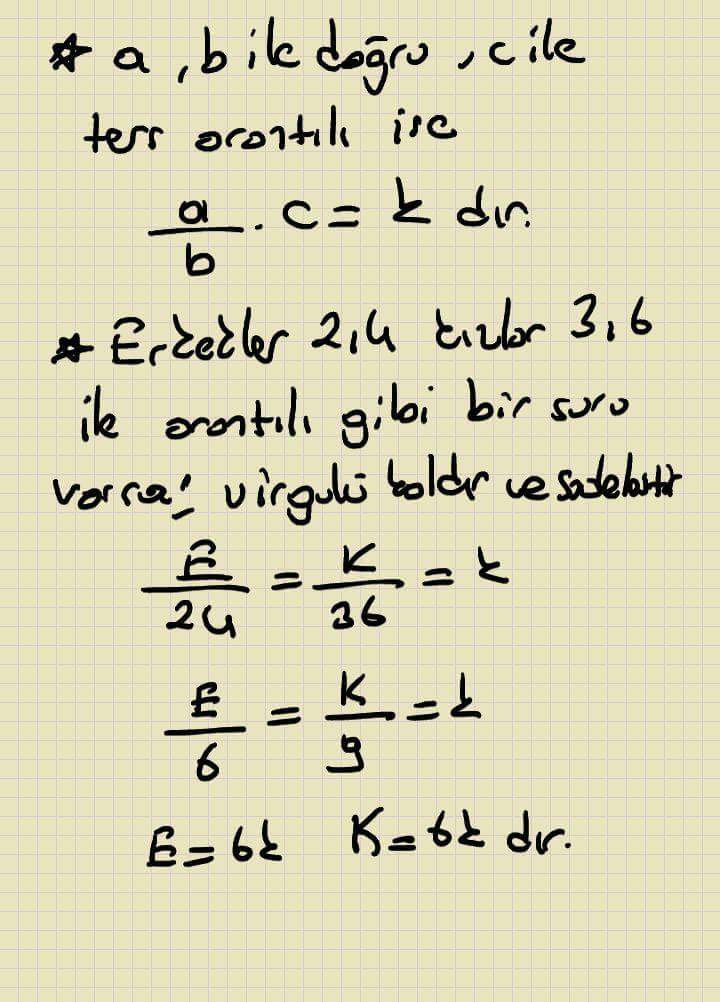 * a, b ile doğru, c ile
ters orantılı ise
a/b . c = k dır.
* Erkekler 2,4 kızlar 3,6
ile orantılı gibi bir soru
varsa! virgülü kaldır ve sadeleştir
E/24 = K/36 = k
E/6 = K/9 = k
E = 6k K = 6k dır.